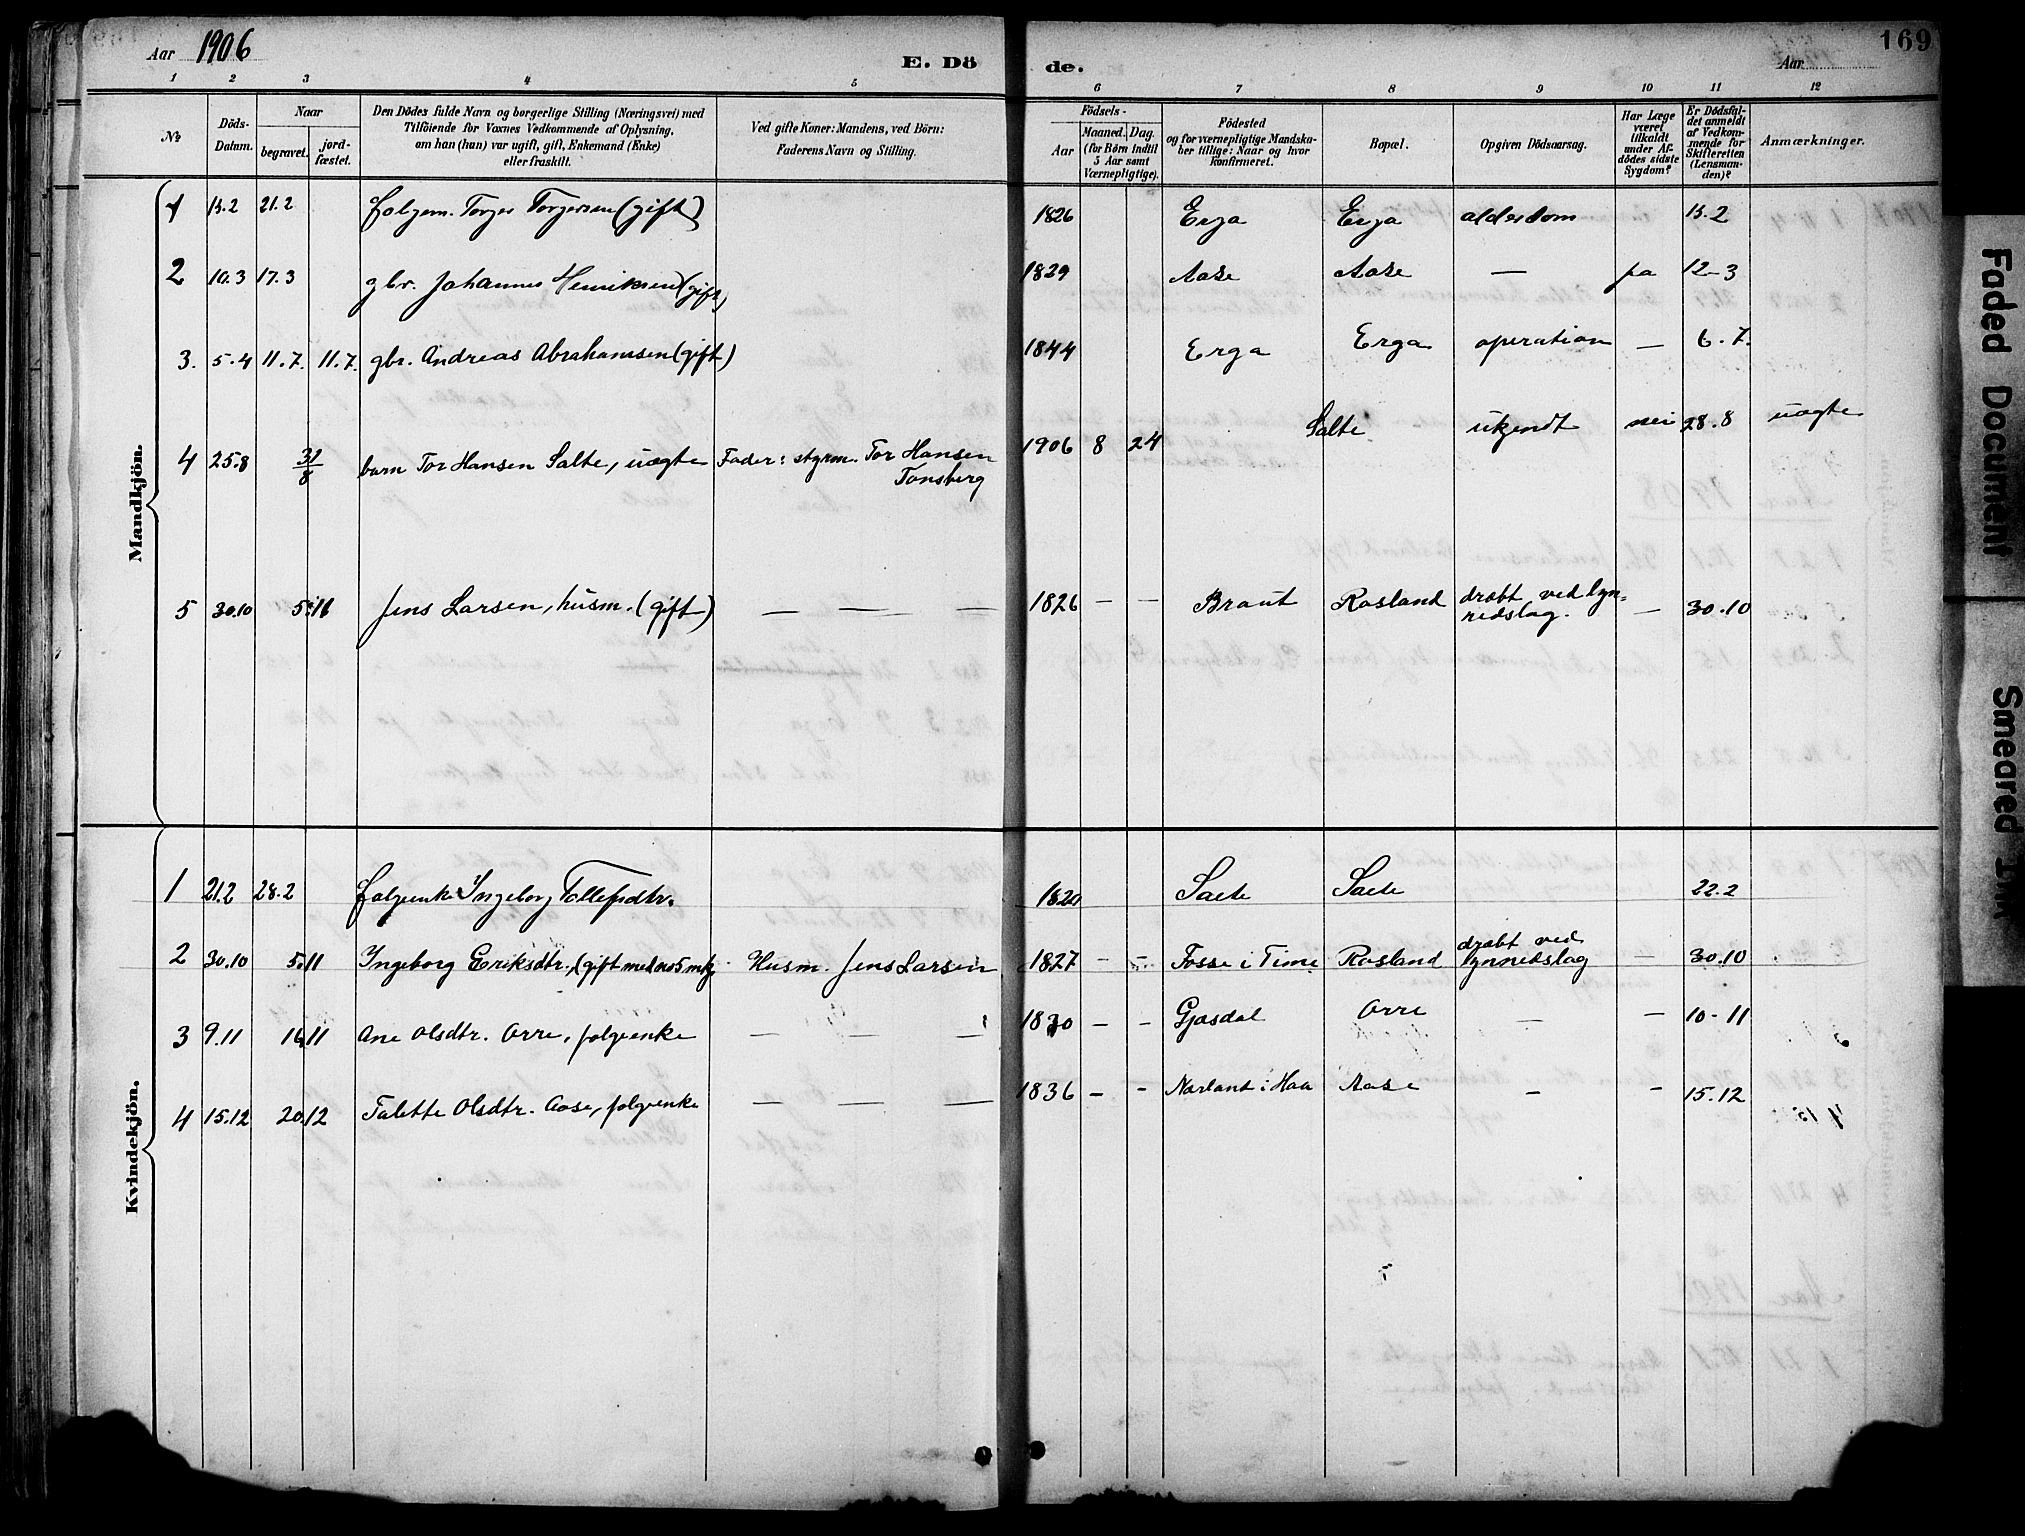 Aar 1906
E. Dö
de.
Aar
169
1 2 3 4 5 6 7 8 9 10 11 12
No
Döds-
Datum.
Naar
begravet.
jord-
fæstet.
Den Dödes fulde Navn og borgerlige Stilling (Næringsvei) med
Tilföiende for Voxnes Vedkommende af Oplysning,
om han (hun) var ugift, gift, Enkemand (Enke)
eller fraskilt.
Ved gifte Koner: Mandens, ved Börn:
Faderens Navn og Stilling.
Födsels-
Aar
Maaned. Dag.
(for Børn indtil
5 Aar samt
Værnepligtige).
Födested
og for værnepligtige Mandska-
ber tillige: Naar og hvor
konfirmeret.
Bopæl.
Opgiven Dödsaarsag.
Har Læge
været
tilkaldt
under Af-
dödes sidste
Sygdom?
Er Dödsfal-
det anmeldt
af Vedkom-
mende for
Skifteretten
(Lensman-
den)?
Anmærkninger.
Mandkjön.
1 21.2 folgem. Torger Torgersen (gift) 1826 Erga Erga alderdom
2 10.3 17.3 gbr. Johannes Henriksen (gift) 1829 Aase Aase — ja 12-3
3. 5.4 11.7. 11.7. gbr. Andreas Abrahamsen (gift) 1844 Erga Erga operation — 6.7.
4 25.8 31/8 barn Tor Hansen Salte, uægte Fader: styrm. Tor Hansen
Tønsberg
1906 8 24 Salte ukjendt nei 28.8 uægte
5 30.10 5.11 Jens Larsen, husm. (gift) — — — 1826 — — Braut Rosland dræbt ved lyn=
nedslag. — 30.10
Kvindekjön.
1 21.2 28.2 folgeenke Ingeborg Tollefsdtr. 1820 Saele Saele 22.2
2 30.10 5.11 Ingeborg Eriksdtr., (gift med no 5 mkj Husm. Jens Larsen 1827 – – Fosse i Time Rosland dræbt ved
lynnedslag — 30.10
3 9.11 Ane Olsdtr. Orre, folgeenke — — — 1830 – – Gjesdal Orre — — 10-11
4 15.12 20.12 Talette Olsdtr. Aase, folgeenke — — — 1836 – - Nærland i Haa Aase – – 15.12
Faded Document
Smeared Ink